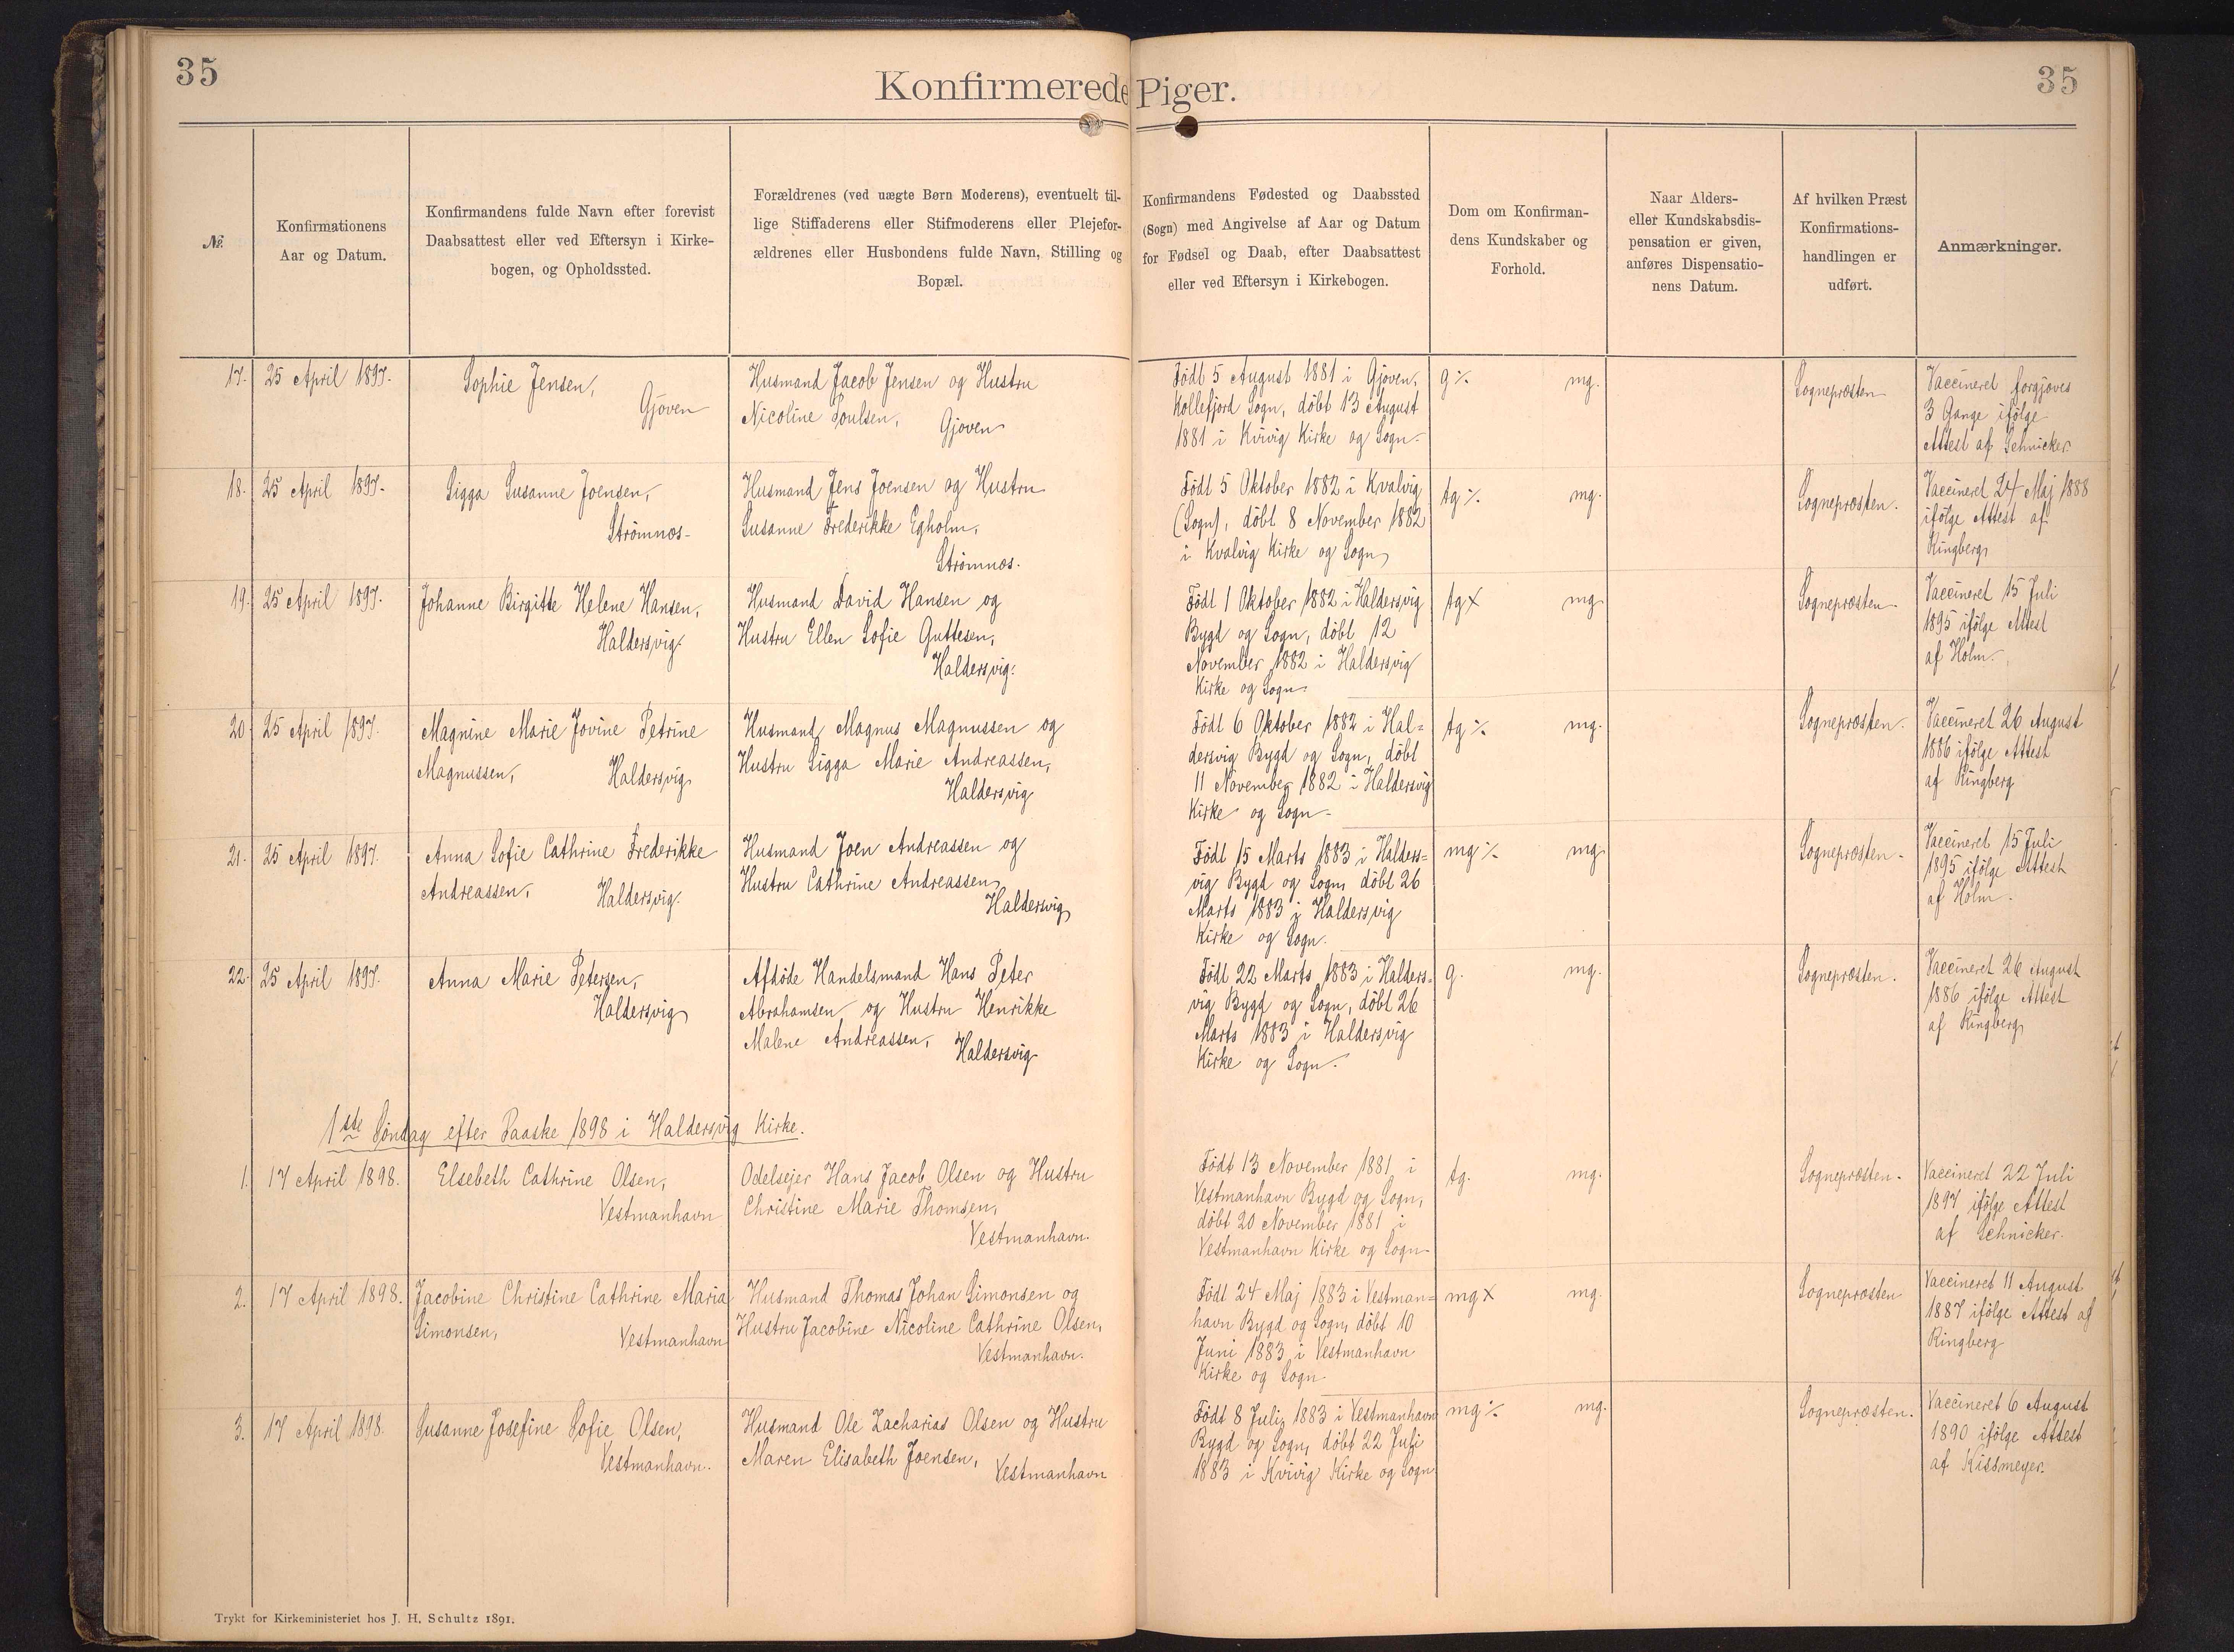 35
Konfirmerede Piger.
35
№.
Konfirmationens
Aar og Datum.
Konfirmandens fulde Navn efter forevist
Daabsattest eller ved Eftersyn i Kirke-
bogen, og Opholdssted.
Forældrenes (ved uægte Børn Moderens), eventuelt til-
lige Stiffaderens eller Stifmoderens eller Plejefor-
ældrenes eller Husbondens fulde Navn, Stilling og
Bopæl.
Konfirmandens Fødested og Daabssted
(Sogn) med Angivelse af Aar og Datum
for Fødsel og Daab, efter Daabsattest
eller ved Eftersyn i Kirkebogen.
Dom om Konfirman-
dens Kundskaber og
Forhold.
Naar Alders-
eller Kundskabsdis-
pensation er given,
anføres Dispensatio-
nens Datum.
Af hvilken Præst
Konfirmations-
handlingen er
udført.
Anmærkninger.
17.
25 April 1897.
Sophie Jensen,
Gjøven
Husmand Jacob Jensen og Hustru
Nicoline Poulsen,
Gjøven
Født 5 August 1881 i Gjøven,
Kollefjord Sogn, döbt 13 August
1881 i Kvivig Kirke og Sogn.
g ⁒ mg.
Sognepræsten
Vaccineret forgjæves
3 Gange ifölge
Attest af Schnicker
18.
25 April 1897.
Sigga Susanne Joensen,
Strömnæs.
Husmand Jens Joensen og Hustru
Susanne Frederikke Egholm,
Strömnæs.
Födt 5 Oktober 1882 i Kvalvig
(Sogn), döbt 8 November 1882
i Kvalvig Kirke og Sogn
tg ⁒ mg.
Sognepræsten.
Vaccineret 24 Maj 1888
ifölge Attest af
Ringberg
19.
25 April 1897.
Johanne Birgitte Helene Hansen,
Haldersvig.
Husmand David Hansen og
Hustru Ellen Sofie Guttesen,
Haldersvig.
Födt 1 Oktober 1882 i Haldersvig
Bygd og Sogn, döbt 12
November 1882 i Haldersvig
Kirke og Sogn.
tg x mg.
Sognepræsten.
Vaccineret 15 Juli
1895 ifölge Attest
af Holm.
20.
25 April 1897.
Magnine Marie Jovine Petrine
Magnussen,
Haldersvig
Husmand Magnus Magnussen og
Hustru Sigga Marie Andreassen,
Haldersvig
Födt 6 Oktober 1882 i Hal=
dersvig Bygd og Sogn, döbt
11 November 1882 i Haldersvig
Kirke og Sogn.
tg ⁒ mg.
Sognepræsten.
Vaccineret 26 August
1886 ifölge Attest
af Ringberg
21.
25 April 1897.
Anna Sofie Cathrine Frederikke
Andreassen,
Haldersvig.
Husmand Joen Andreassen og
Hustru Cathrine Andreassen
Haldersvig
Födt 15 Marts 1883 i Halders=
vig Bygd og Sogn, döbt 26
Marts 1883 i Haldersvig
Kirke og Sogn.
mg ⁒ mg
Sognepræsten.
Vaccineret 15 Juli
1895 ifölge Attest
af Holm.
22.
25 April 1897.
Anna Marie Petersen,
Haldersvig
Afdöde Handelsmand Hans Peter
Abrahamsen og Hustru Henrikke
Malene Andreassen,
Haldersvig
Födt 22 Marts 1883 i Halders=
vig Bygd og Sogn, döbt 26
Marts 1883 i Haldersvig
Kirke og Sogn.
g. mg.
Sognepræsten.
Vaccineret 26 August
1886 ifölge Attest
af Ringberg
1ste Söndag efter Paaske 1898 i Haldersvig Kirke.
1.
17 April 1898.
Elsebeth Cathrine Olsen,
Vestmanhavn
Odelsejer Hans Jacob Olsen og Hustru
Christine Marie Thomsen,
Vestmanhavn.
Födt 13 November 1881 i
Vestmanhavn Bygd og Sogn,
döbt 20 November 1881 i
Vestmanhavn Kirke og Sogn.
tg. mg.
Sognepræsten.
Vaccineret 22 Juli
1897 ifölge Attest
af Schnicker.
2.
17 April 1898.
Jacobine Christine Cathrine Maria
Simonsen,
Vestmanhavn
Husmand Thomas Johan Simonsen og
Hustru Jacobine Nicoline Cathrine Olsen,
Vestmanhavn.
Födt 24 Maj 1883 i Vestman=
havn Bygd og Sogn, döbt 10
Juni 1883 i Vestmanhavn
Kirke og Sogn
mg x mg.
Sognepræsten
Vaccineret 11 August
1887 ifölge Attest af
Ringberg
3.
17 April 1898.
Susanne Josefine Sofie Olsen,
Vestmanhavn.
Husmand Ole Zacharias Olsen og Hustru
Maren Elisabeth Joensen,
Vestmanhavn
Födt 8 Juli 1883 i Vestmanhavn
Bygd og Sogn, döbt 22 Juli
1883 i Kvivig Kirke og Sogn
mg ⁒ mg.
Sognepræsten.
Vaccineret 6 August
1890 ifölge Attest
af Kissmeyer.
Trykt for Kirkeministeriet hos J. H. Schultz 1891.